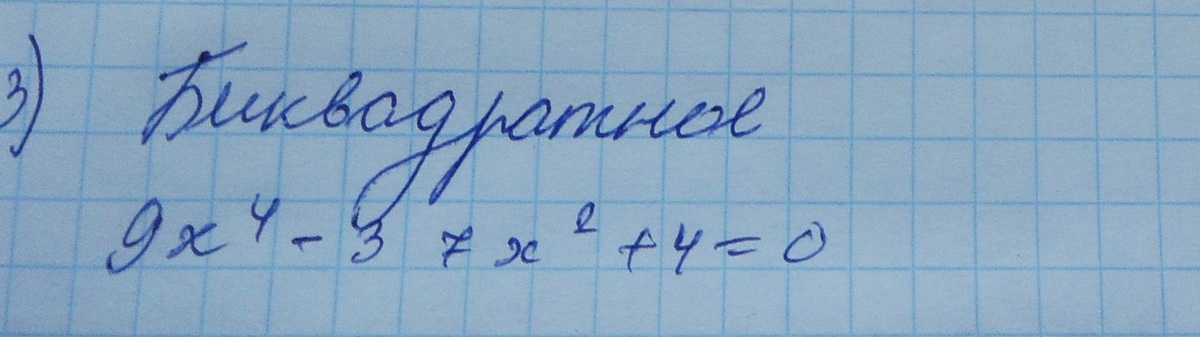 3) Биквадратное
9x⁴ - 37x² + 4 = 0